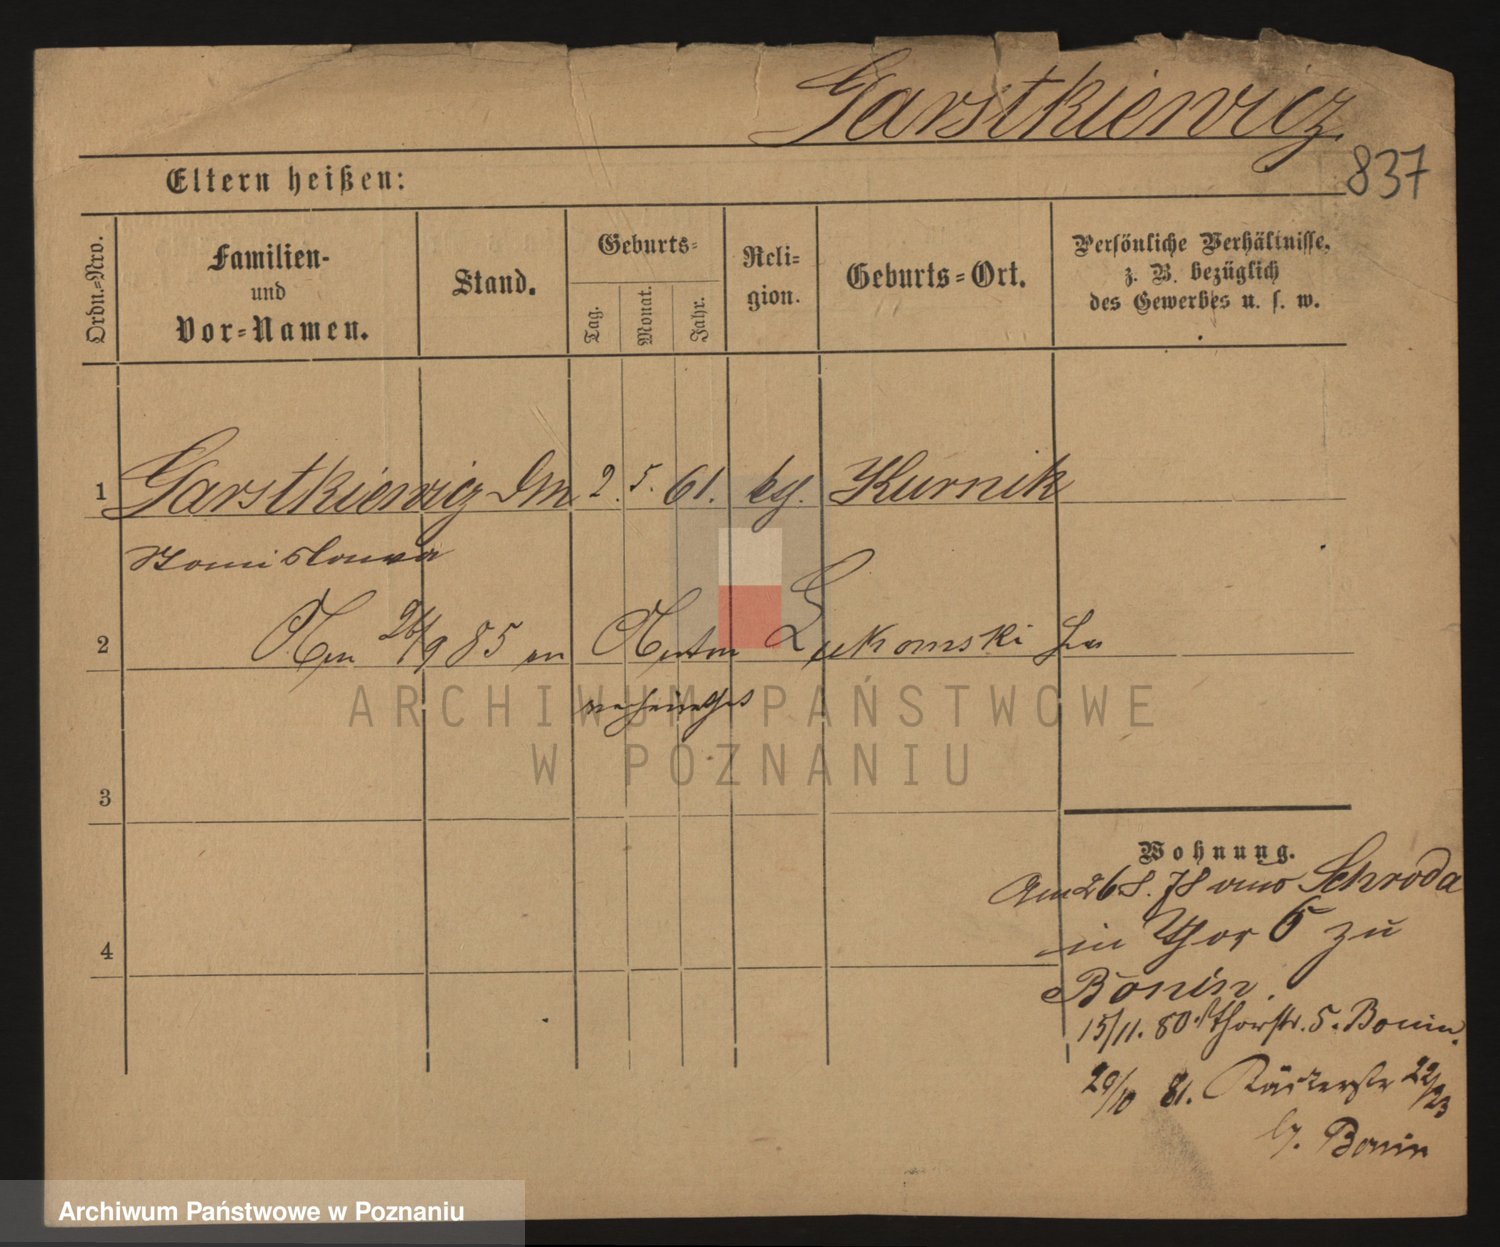 Garstkiewicz
837
Eltern heißen:
Ordn.=Nro.
Familien-
und
Vor=Namen.
Stand.
Geburts=
Tag.
Monat.
Jahr.
Reli=
gion.
Geburts=Ort.
Persönliche Verhältnisse,
z. B. bezüglich
des Gewerbes u. s. w.
1 Garstkiewicz 2. 5. 61. Kurnik
2 26/9 85 an Anton Lukomski
3
4
ARCHIWUM PAŃSTWOWE
W POZNANIU
Wohnung.
Am 26 8. 78 aus Schroda
in Thor 5 zu
Bonin.
15/11. 80 Thorstr. 5. Bonin.
29/10 81. 22/23
b/. Bonin
Archiwum Państwowe w Poznaniu